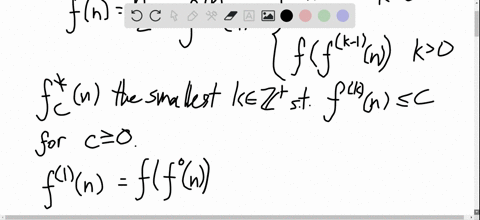 f(n) = n
{ f(f^(k-1)(n)) k>0
f*_c(n) the smallest k∈Z⁺ s.t. f^(k)(n) ≤ C
for c≥0.
f^(1)(n) = f(f^0(n))